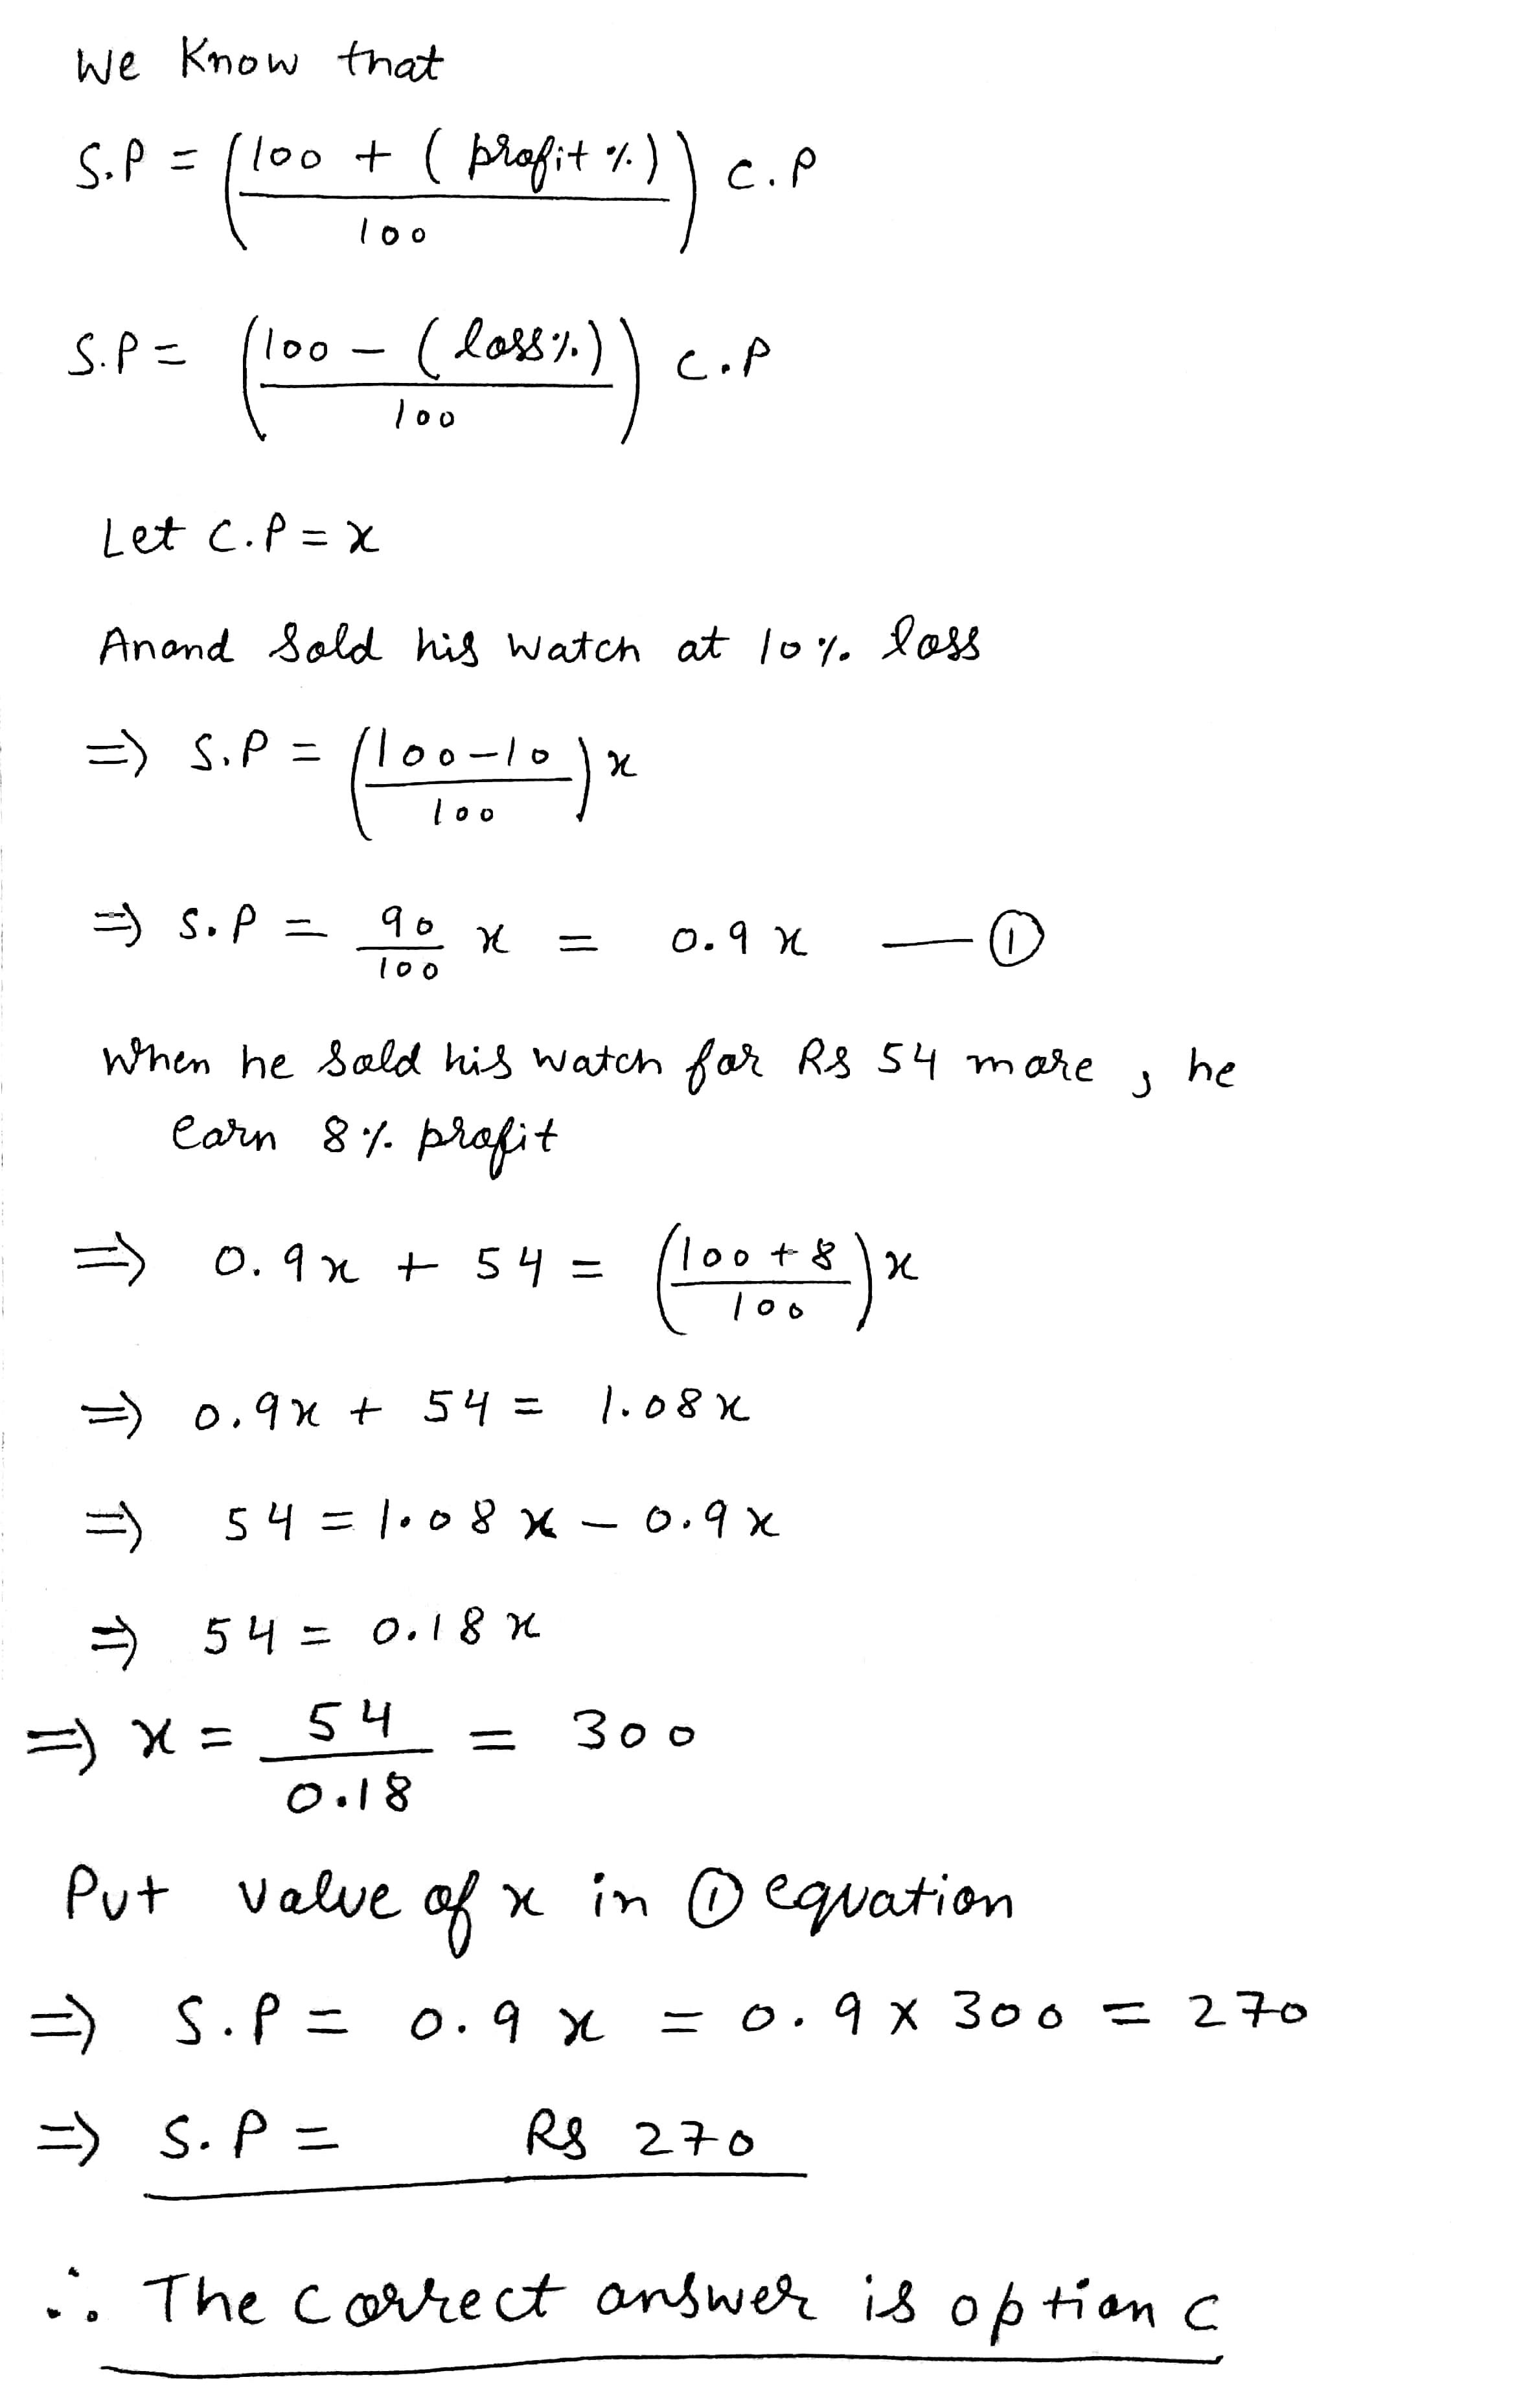 We Know that
S.P = (100 + (profit %) / 100) C.P
S.P = (100 - (loss%) / 100) C.P
Let C.P = x
Anand Sold his watch at 10% loss
=> S.P = (100-10 / 100) x
=> S.P = 90/100 x = 0.9x —①
When he sold his watch for Rs 54 more, he
earn 8% profit
=> 0.9x + 54 = (100+8 / 100) x
=> 0.9x + 54 = 1.08x
=> 54 = 1.08x - 0.9x
=> 54 = 0.18x
=> x = 54/0.18 = 300
Put value of x in ① equation
=> S.P = 0.9x = 0.9 x 300 = 270
=> S.P = Rs 270
∴ The correct answer is option C